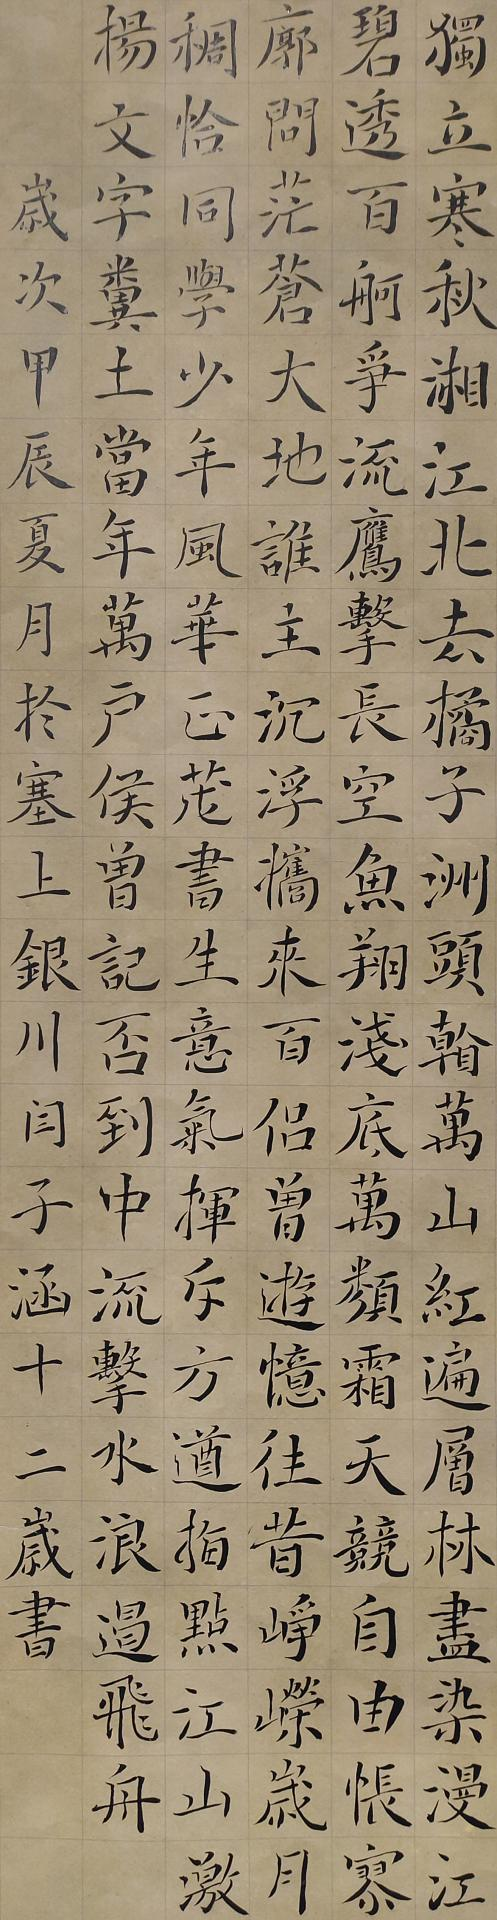 獨立寒秋湘江北去橘子洲頭看萬山紅遍層林盡染漫江
碧透百舸爭流鷹擊長空魚翔淺底萬類霜天競自由悵寥
廓問茫蒼大地誰主沉浮攜來百侶曾遊憶往昔崢嶸歲月
稠恰同學少年風華正茂書生意氣揮斥方遒指點江山激
揚文字糞土當年萬戶侯曾記否到中流擊水浪遏飛舟
歲次甲辰夏月於塞上銀川閆子涵十二歲書